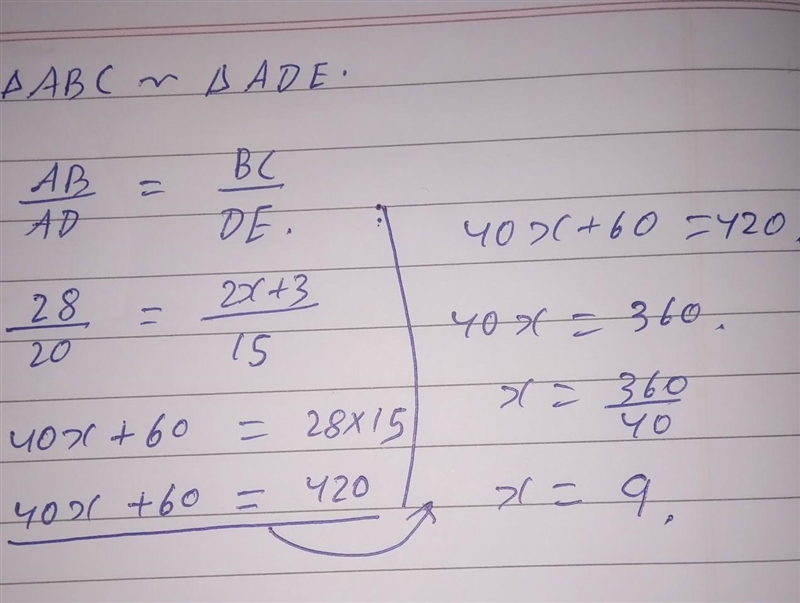 ΔABC ~ ΔADE.
AB/AD = BC/DE.
28/20 = 2x+3/15
40x+60 = 28×15
40x+60 = 420
40x+60 = 420.
40x = 360.
x = 360/40
x = 9.